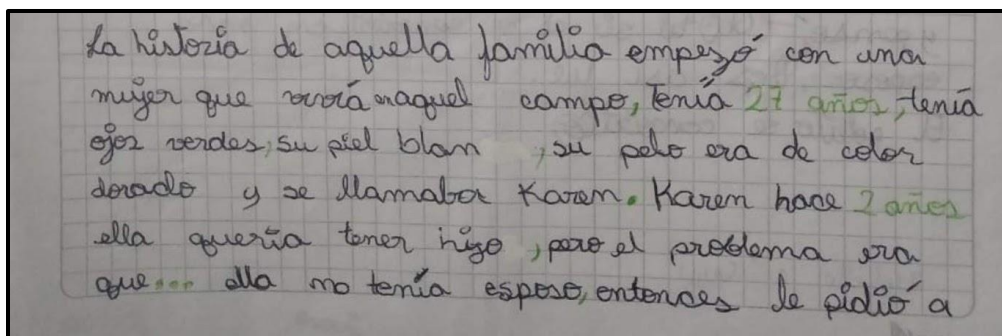 La historia de aquella familia empezó con una
mujer que vivía enaquel campo, Tenía 27 años, tenía
ojos verdes, su piel blan , su pelo era de color
dorado y se llamaba Karen. Karen hace 2 años
ella quería tener hijo, pero el problema era
que... ella no tenía esposo, entonces le pidió a